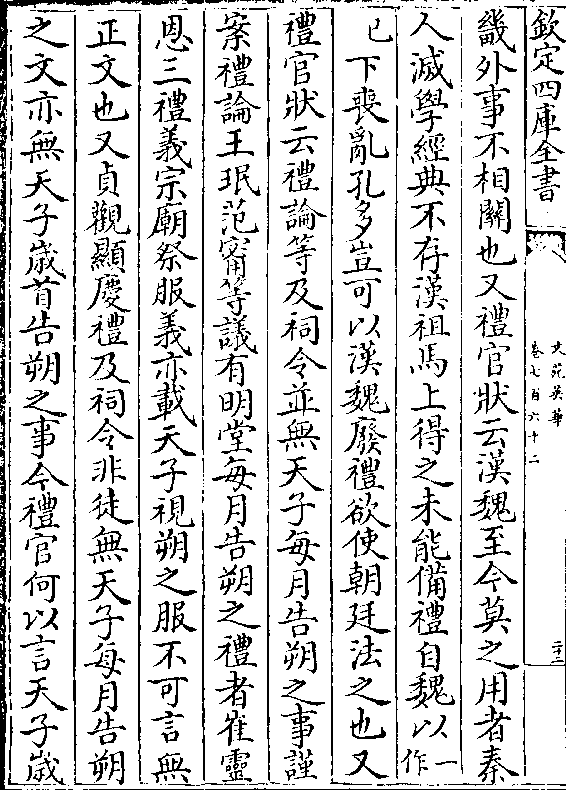 欽定四庫全書
文苑英華
卷七百六十二
二十二
畿外事不相關也又禮官狀云漢魏至今莫之用者秦
人滅學經典不存漢祖馬上得之未能備禮自魏以一作
已下喪亂孔多豈可以漢魏廢禮欲使朝廷法之也又
禮官狀云禮論等及祠令並無天子每月告朔之事謹
案禮論王珉范甯等議有明堂每月告朔之禮者崔靈
恩三禮義宗廟祭服義亦載天子視朔之服不可言無
正文也又貞觀顯慶禮及祠令非徒無天子每月告朔
之文亦無天子歲首告朔之事今禮官何以言天子歲